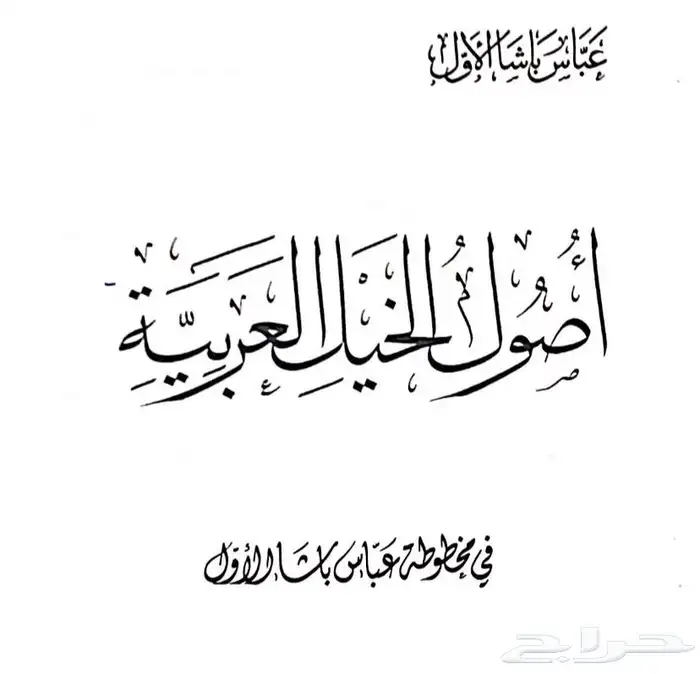 عَبَّاس بَاشَا الأوّل
أُصُول الخَيْل العَرَبيَّة
في مخطوطة عبّاس باشا الأوّل
حراج